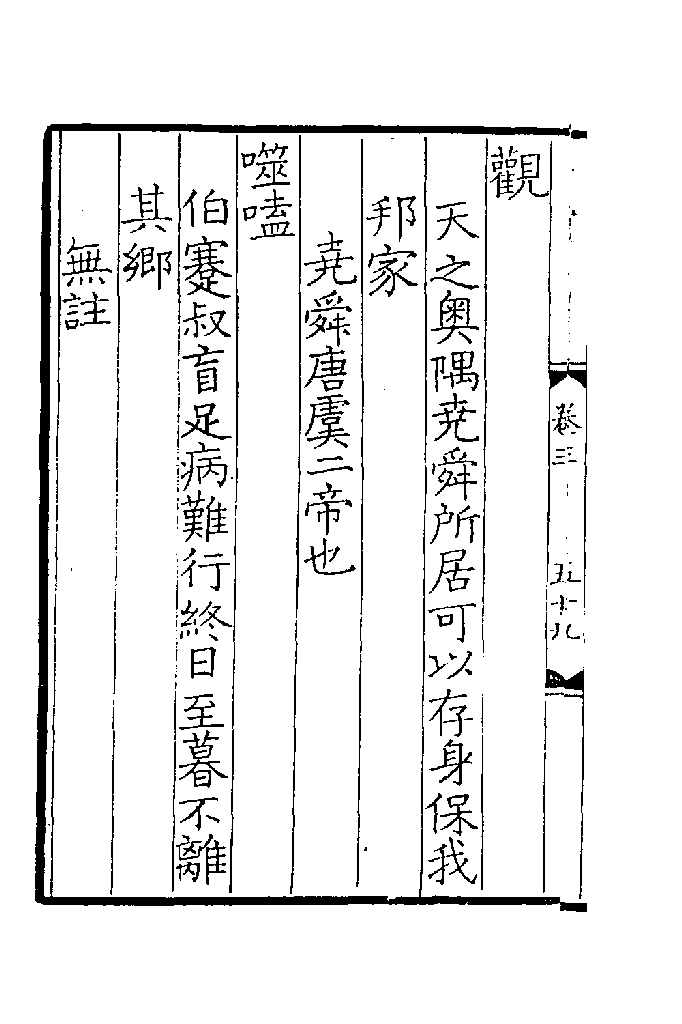 卷三
五十九
觀
天之奧隅堯舜所居可以存身保我
邦家
堯舜唐虞二帝也
噬嗑
伯蹇叔盲足病難行終日至暮不離
其鄉
無註